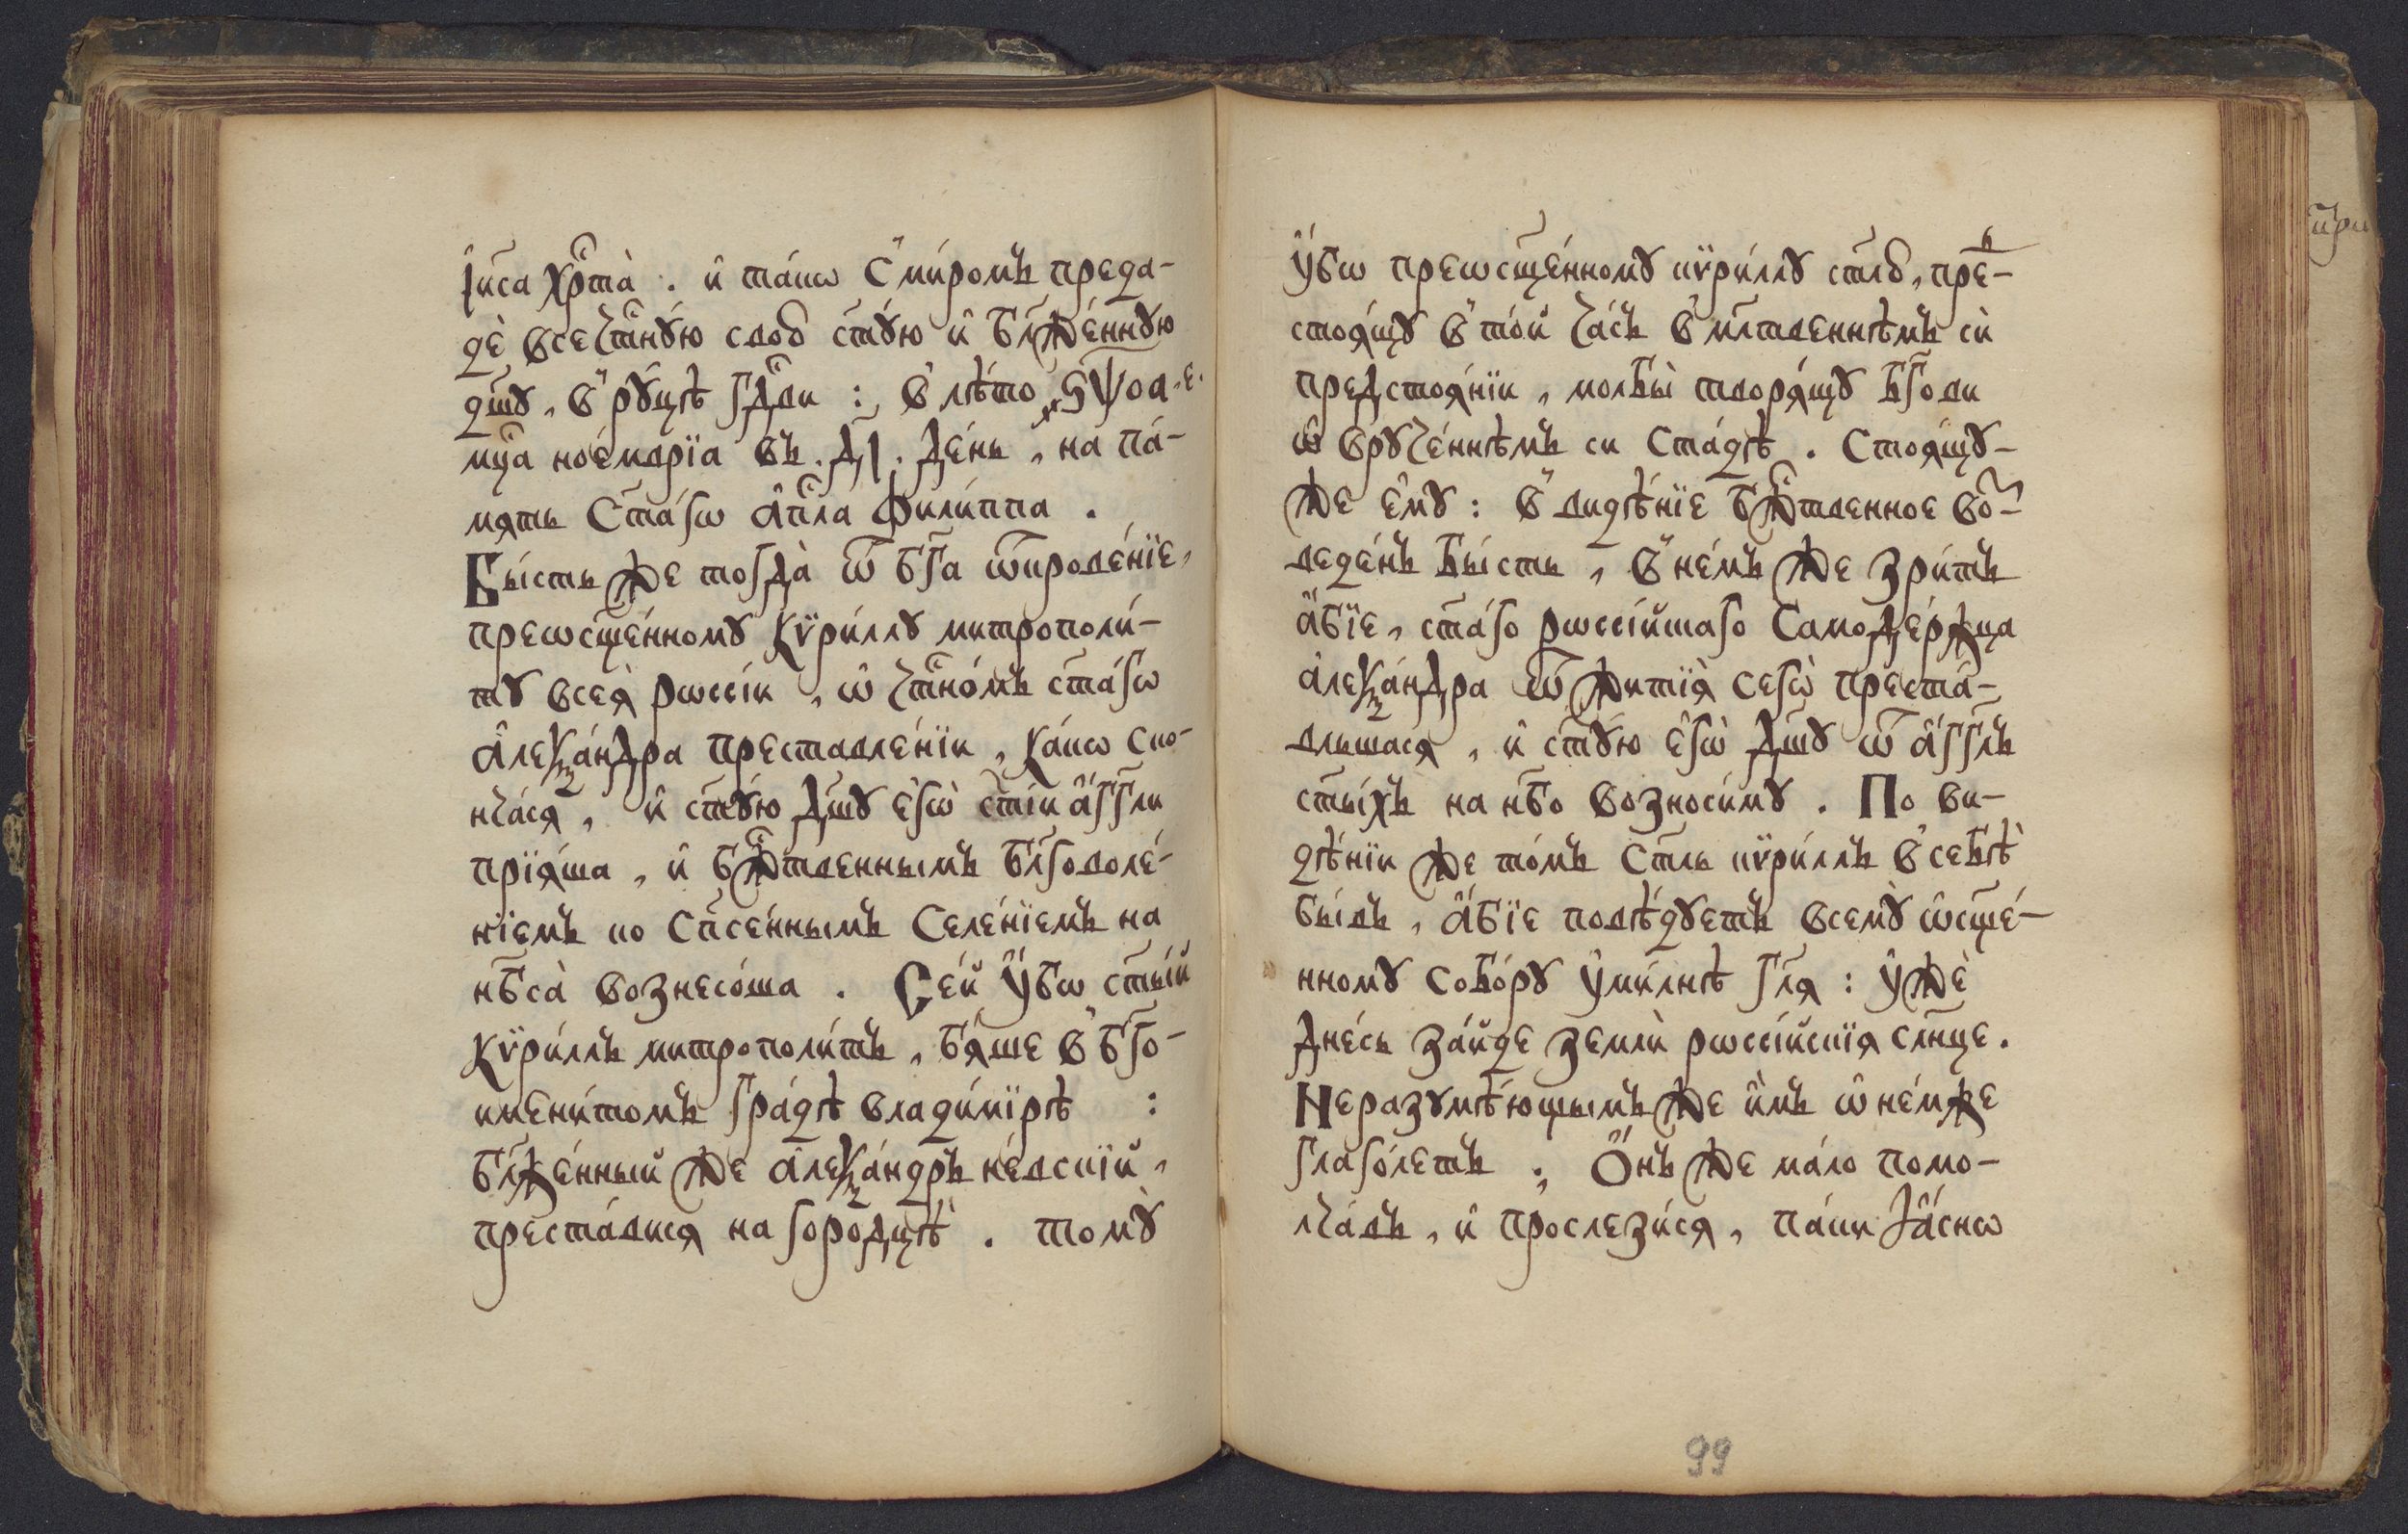 І҆и҃са хрⷭ҇та̀ . и҆ та́кѡ с̾ми́ромъ преда-
дѐ всечⷭ҇тнꙋ́ю свою̀ ст҃ꙋ́ю и҆ бл҃же́ннꙋю
дш҃ꙋ , в̾рꙋ́цѣ гдⷭ҇ви : в̾лѣ́то ҂ѕѱоа е҃
мц҃а ное́мврїа въ . д҃і . де́нь , на па́-
мять ст҃а́гѡ а҆пⷭ҇ла фили́ппа .
Бы́сть же тогда̀ ѿ бг҃а ѿкрове́нїе ,
преѡсщ҃е́нномꙋ кѷри́ллꙋ митрополи́-
тꙋ всеѧ̀ рѡссі́и , ѡ҆ чⷭ҇тно́мъ ст҃а́гѡ
а҆леѯа́ндра преставле́нїи , ка́кѡ ско-
нча́сѧ , и҆ ст҃ꙋ́ю дш҃ꙋ є҆гѡ̀ ст҃і́и а҆́гг҃ли
прїѧ́ша , и҆ бжⷭ҇твеннымъ бл҃говоле́-
нїемъ ко сп҃се́ннымъ селе́нїемъ на
нб҃са̀ вознесо́ша . Се́й ᲂу҆́бѡ ст҃ы́й
кѷри́ллъ митрополи́тъ , бѧ́ше в̾ бг҃о-
имени́томъ гра́дѣ влади́мїрѣ :
бл҃же́нный же а҆леѯа́ндръ не́вскїй ,
преста́висѧ на городцѣ̀ . томꙋ̀
ᲂу҆́бѡ преѡсщ҃е́нномꙋ кѷри́ллꙋ ст҃лю̀ , пре-
стоѧ́щꙋ в̾ то́й ча́съ в̾ мл҃твеннѣмъ сѝ
предстоѧ́нїи , молбы̀ творѧ́щꙋ бг҃ови
ѡ҆ врꙋче́ннѣмъ си ста́дѣ . Стоѧ́щꙋ-
же є҆мꙋ̀ : в̾ видѣ́нїе бжⷭ҇твенное во-
веде́нъ бы́сть , в̾ не́мъ же зри́тъ
а҆́бїе , ст҃а́го рѡссі́йскаго самоде́ржца
а҆леѯа́ндра ѿ житїѧ̀ сегѡ̀ преста́-
вльшасѧ , и҆ ст҃ꙋ́ю є҆гѡ̀ дш҃ꙋ ѿ а҆́гг҃лъ
ст҃ы́хъ на нб҃о возноси́мꙋ . По ви-
дѣ́нїи же то́мъ ст҃ль кѷри́ллъ в̾ себѣ̀
бы́въ , а҆́бїе повѣ́дꙋетъ всемꙋ̀ ѡ҆сщ҃е́-
нномꙋ собо́рꙋ ᲂу҆ми́лнѣ гл҃ѧ : ᲂу҆жѐ
дне́сь за́йде землѝ рѡссі́йскїѧ сл҃нце .
Неразꙋмѣ́ющымъ же и҆̀мъ ѡ҆ не́мже
глаго́летъ ; Ѻ҆́нъ же ма́ло помо-
лча́въ , и҆ прослези́сѧ , па́ки ꙗ҆́снѡ
99